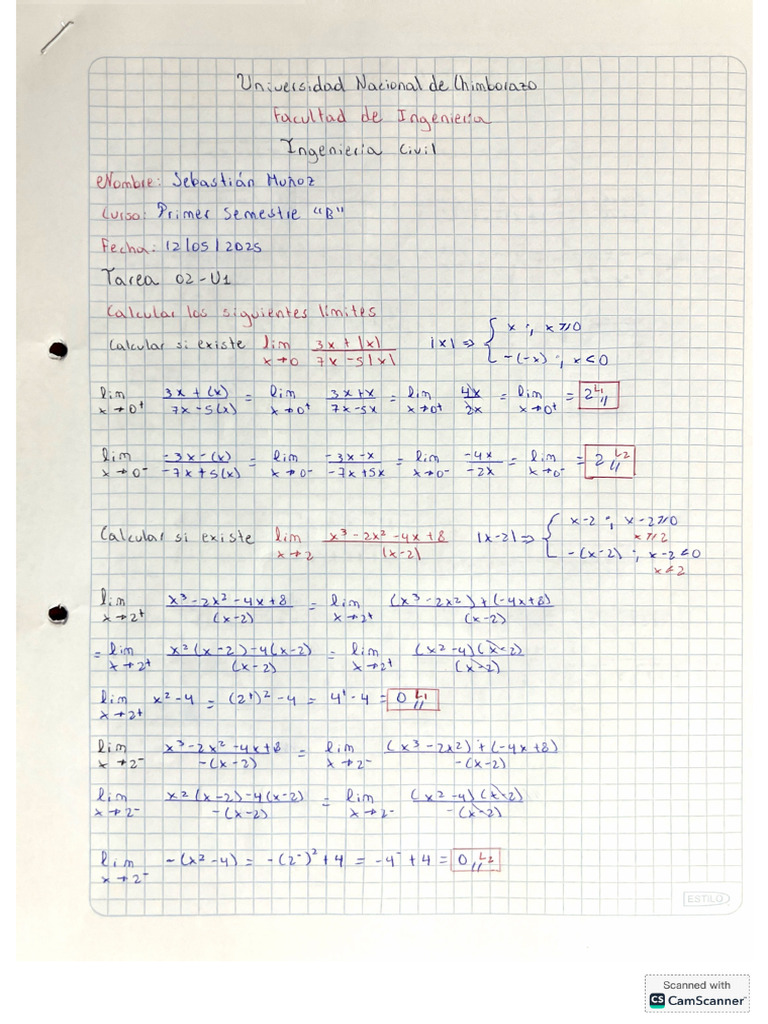 Universidad Nacional de Chimborazo
Facultad de Ingenieria
Ingenieria Civil
Nombre: Sebastián Muñoz
Curso: Primer Semestre "B"
Fecha: 12/05/2025
Tarea 02-U1
Calcular los siguientes límites
Calcular si existe lim x→0 (3x+|x|)/(7x-5|x|) |x| ⇒ { x ; x≥0
-(-x) ; x<0
lim x→0⁺ (3x+(x))/(7x-5(x)) = lim x→0⁺ (3x+x)/(7x-5x) = lim x→0⁺ 4x/2x = lim x→0⁺ = 2 L₁ //
lim x→0⁻ (-3x-(x))/(-7x+5(x)) = lim x→0⁻ (-3x-x)/(-7x+5x) = lim x→0⁻ -4x/-2x = lim x→0⁻ = 2 L₂ //
Calcular si existe lim x→2 (x³-2x²-4x+8)/(|x-2|) |x-2| ⇒ { x-2 ; x-2≥0
x≥2
-(x-2) ; x-2<0
x<2
lim x→2⁺ (x³-2x²-4x+8)/(x-2) = lim x→2⁺ ((x³-2x²)+(-4x+8))/(x-2)
= lim x→2⁺ (x²(x-2)-4(x-2))/(x-2) = lim x→2⁺ ((x²-4)(x-2))/(x-2)
lim x→2⁺ x²-4 = (2⁺)²-4 = 4⁺-4 = 0 L₁ //
lim x→2⁻ (x³-2x²-4x+8)/-(x-2) = lim x→2⁻ ((x³-2x²)+(-4x+8))/-(x-2)
lim x→2⁻ (x²(x-2)-4(x-2))/-(x-2) = lim x→2⁻ ((x²-4)(x-2))/-(x-2)
lim x→2⁻ -(x²-4) = -(2⁻)²+4 = -4⁻+4 = 0 L₂ //
ESTILO
Scanned with
CS CamScanner